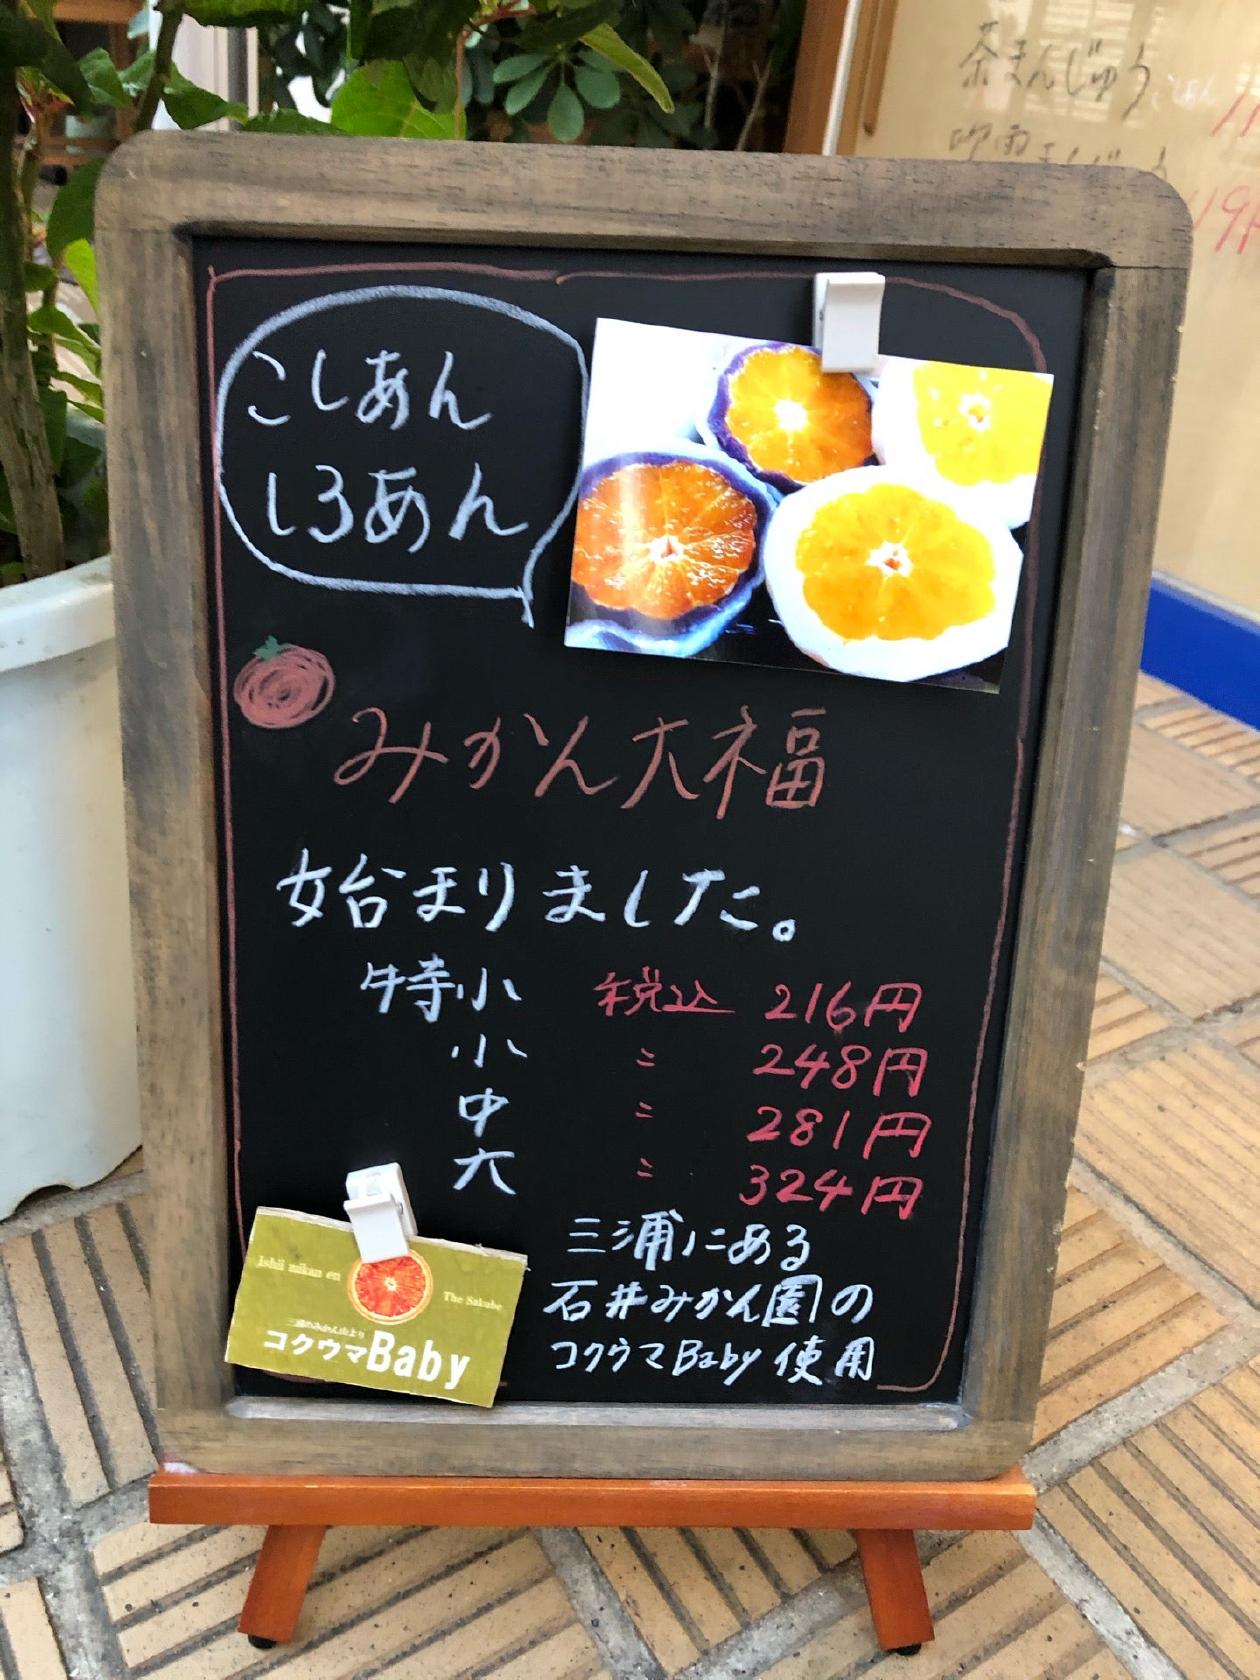 茶まんじゅう
こしあん
しろあん
みかん大福
始まりました。
特小 税込 216円
小 〃 248円
中 〃 281円
大 〃 324円
三浦にある
石井みかん園の
コクウマBaby使用
Ishii mikan en
The Sakube
三浦のみかん山より
コクウマBaby